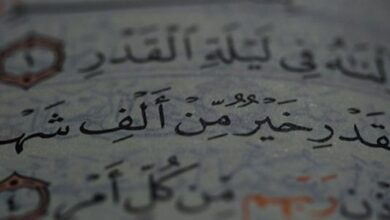 لْنَٰهُ فِي لَيْلَةِ الْقَدْرِ ١
قَدْرِ خَيْرٌ مِّنْ أَلْفِ شَهْ
مِّن كُلِّ أَمْرٍ ٤